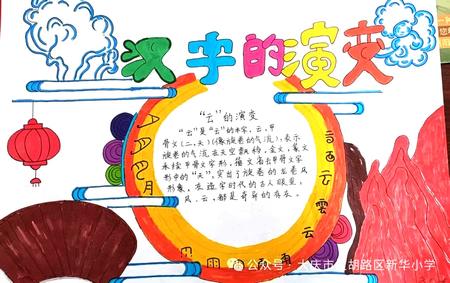 汉字的演变
“云”的演变
“云”是“云”的本字,云,甲
骨文(二,天)(像旋卷的气流),表示
旋卷的气流在天空飘移,金文、篆文
承续甲骨文字形,籀文省去甲骨文字
形中的“天”,突出了旋卷的龙卷风
形象,在造字时代的古人眼里,
风、云,都是奇异的存在。
云
雲
云
月
雨
公众号·大庆市
胡路区新华小学